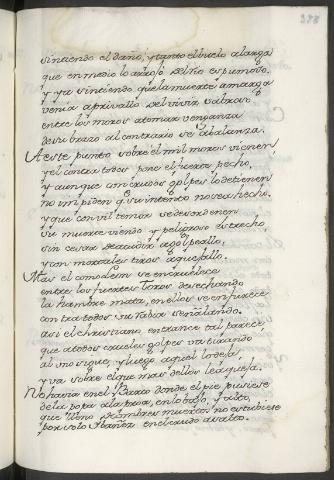 378
sintiendo el daño, y tanto el buelo alarga
que en medio lo arrojó del rio espumoso.
y ya sintiendo que la muerte amarga
venia a privallo del vivir sabroso
entre los moros a tomar venganza
de su brazo al contrario se abalanza.
A este punto sobre el mil moros vienen
y el contra todos pone el fuerte pecho,
y aunque con crudos golpes lo detienen
no impiden q su intento no sea hecho.
y que con vil temor se desordenen
su muerte viendo y peligroso estrecho
sin cesar de acudir a golpeallo,
y con mortales tiros aquejallo.
Mas el como Leon se encruelece
entre los fuertes Toros desechando
la hambre mata, en ellos se enfurece
contra todos su rabia señalando.
asi el christiano entrance tal parece
que a todos crueles golpes va tirando
al uno sigue, y luego aquel lo deja
y va sobre el que mas dellos le aqueja.
No havia en el Barco donde el pie pusiese
de la popa a la proa, en lo bajo, y alto,
que lleno de hombres muertos no estubiese
por solo Ibañez en el crudo asalto.